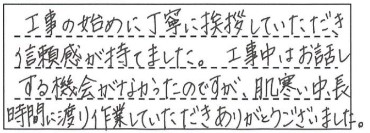 工事の始めに丁寧に挨拶していただき
信頼感が持てました。 工事中はお話し
する機会がなかったのですが、肌寒い中、長
時間に渡り作業していただきありがとうございました。